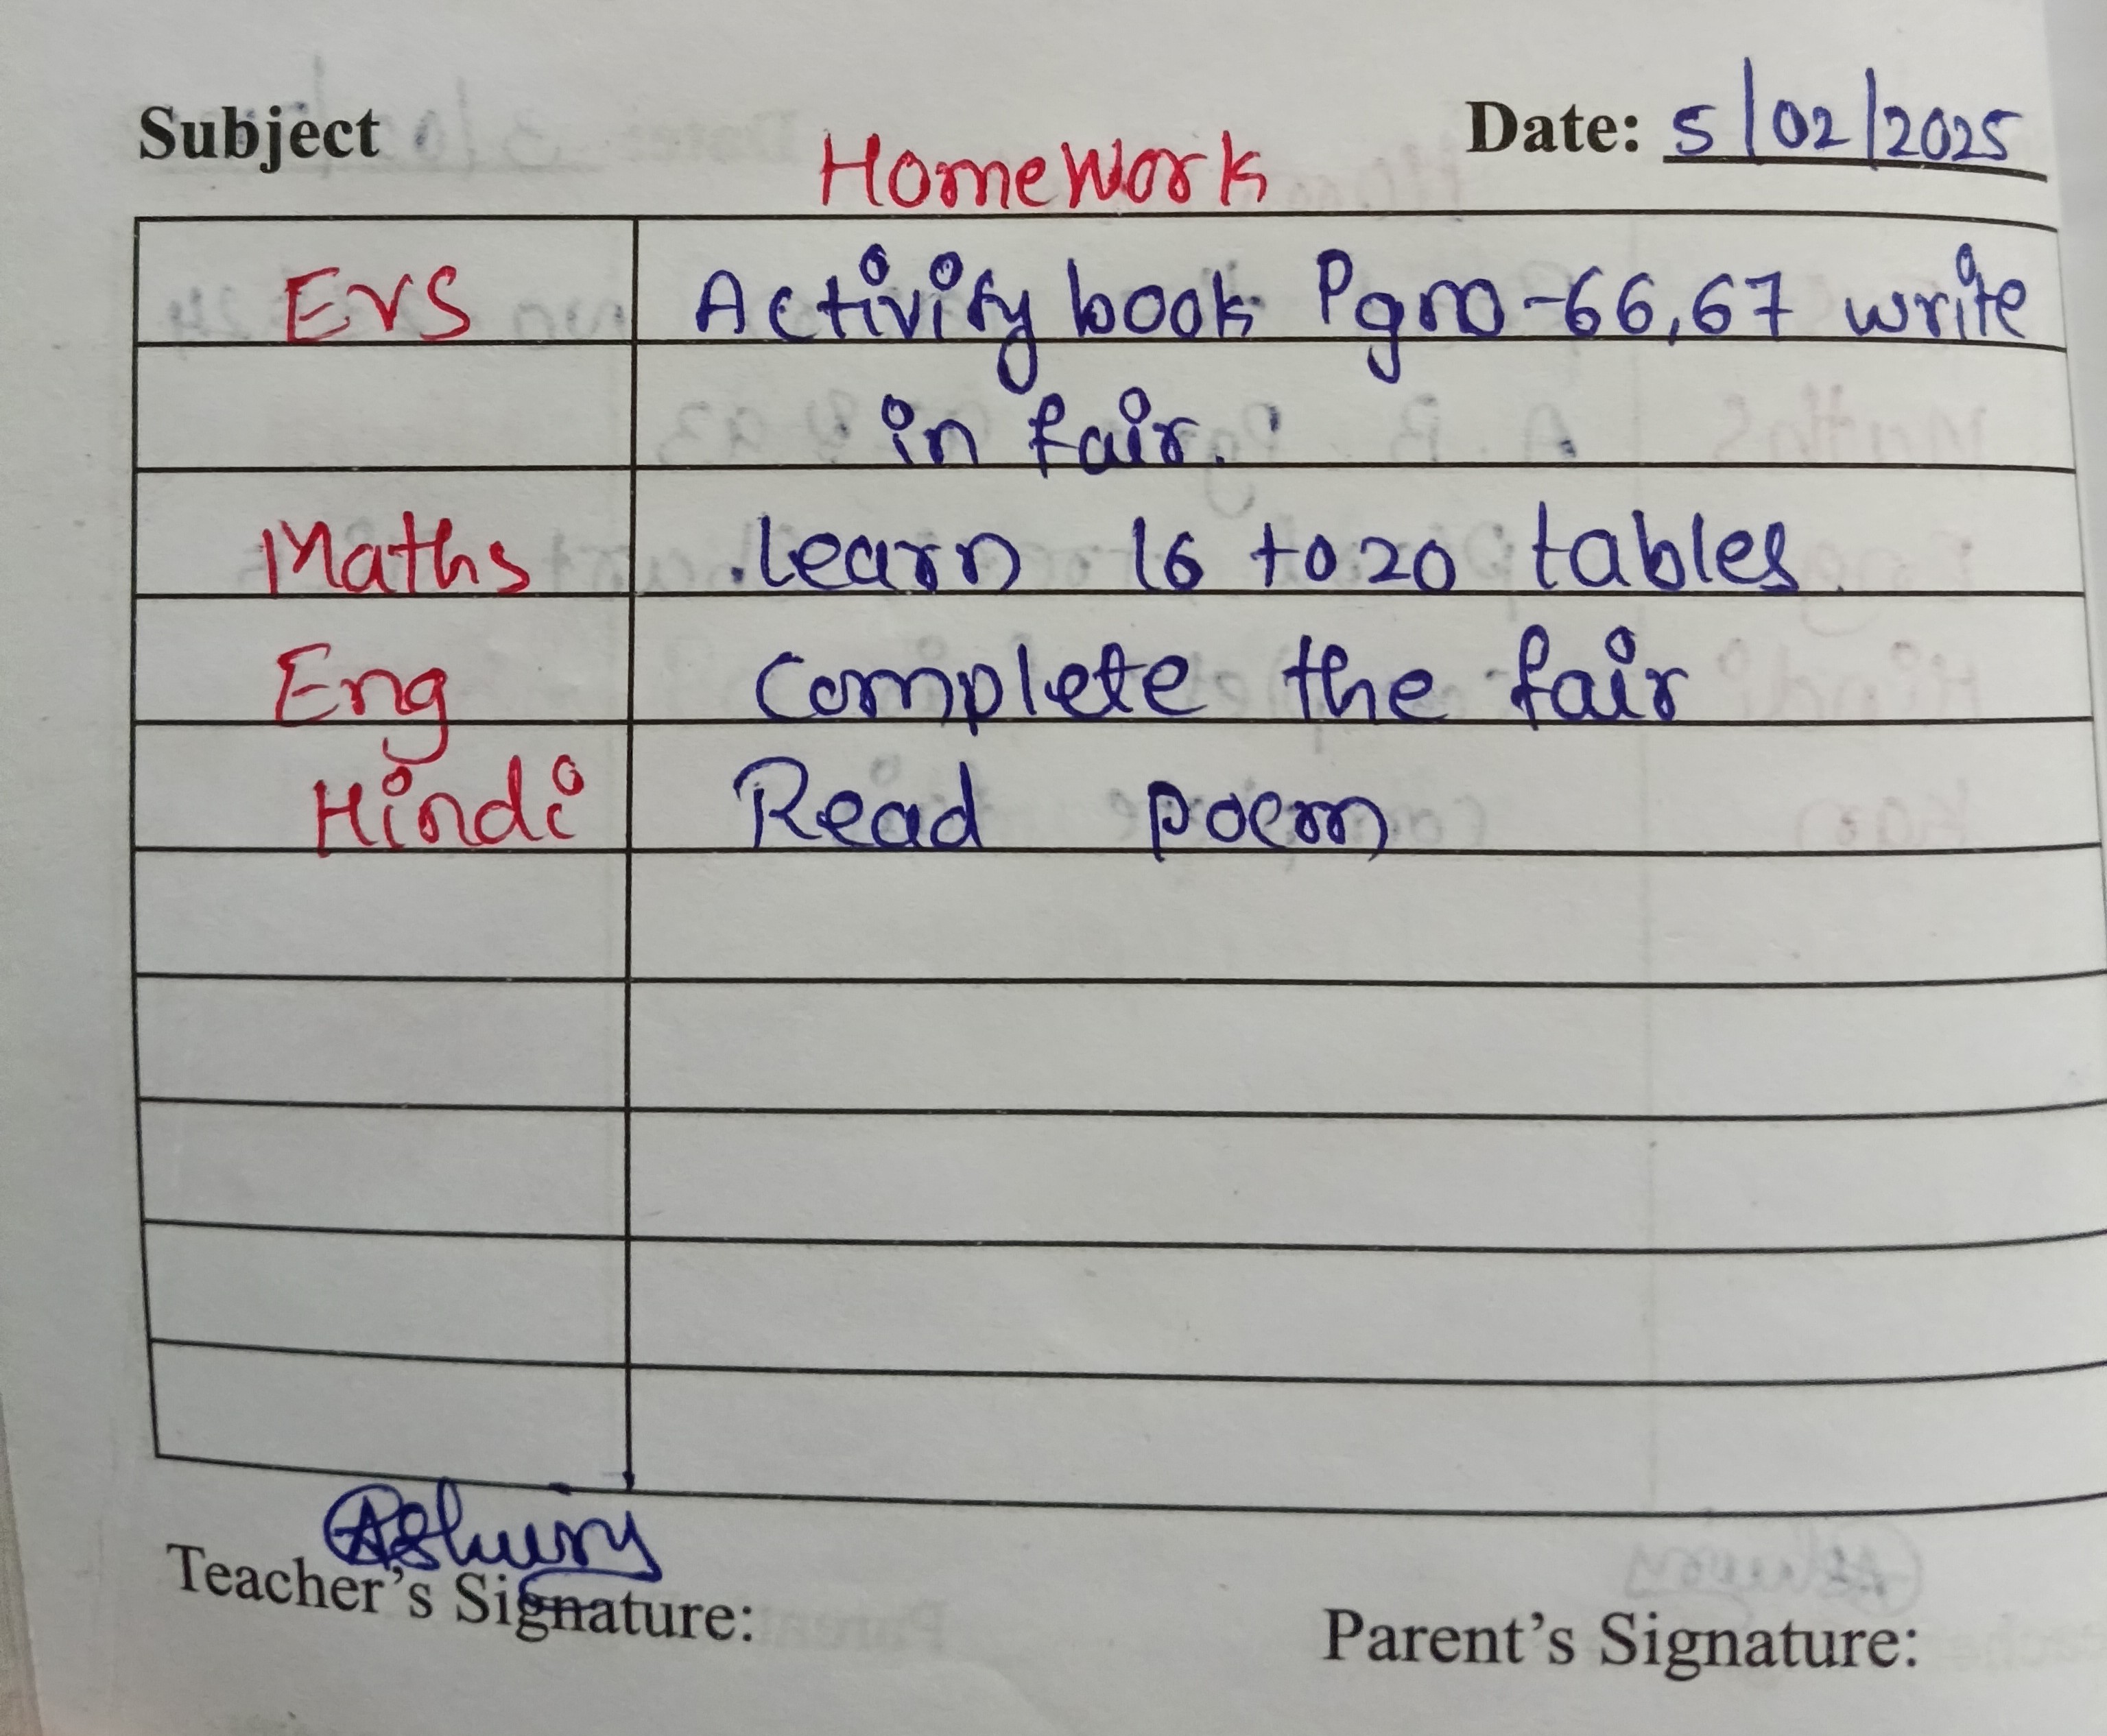 Subject
Date: 5/02/2025
HomeWork
EVS Activity book Pgno-66,67 write
in fair.
Maths learn 16 to 20 tables.
Eng complete the fair
Hindi Read poem
Teacher's Signature:
Parent's Signature: